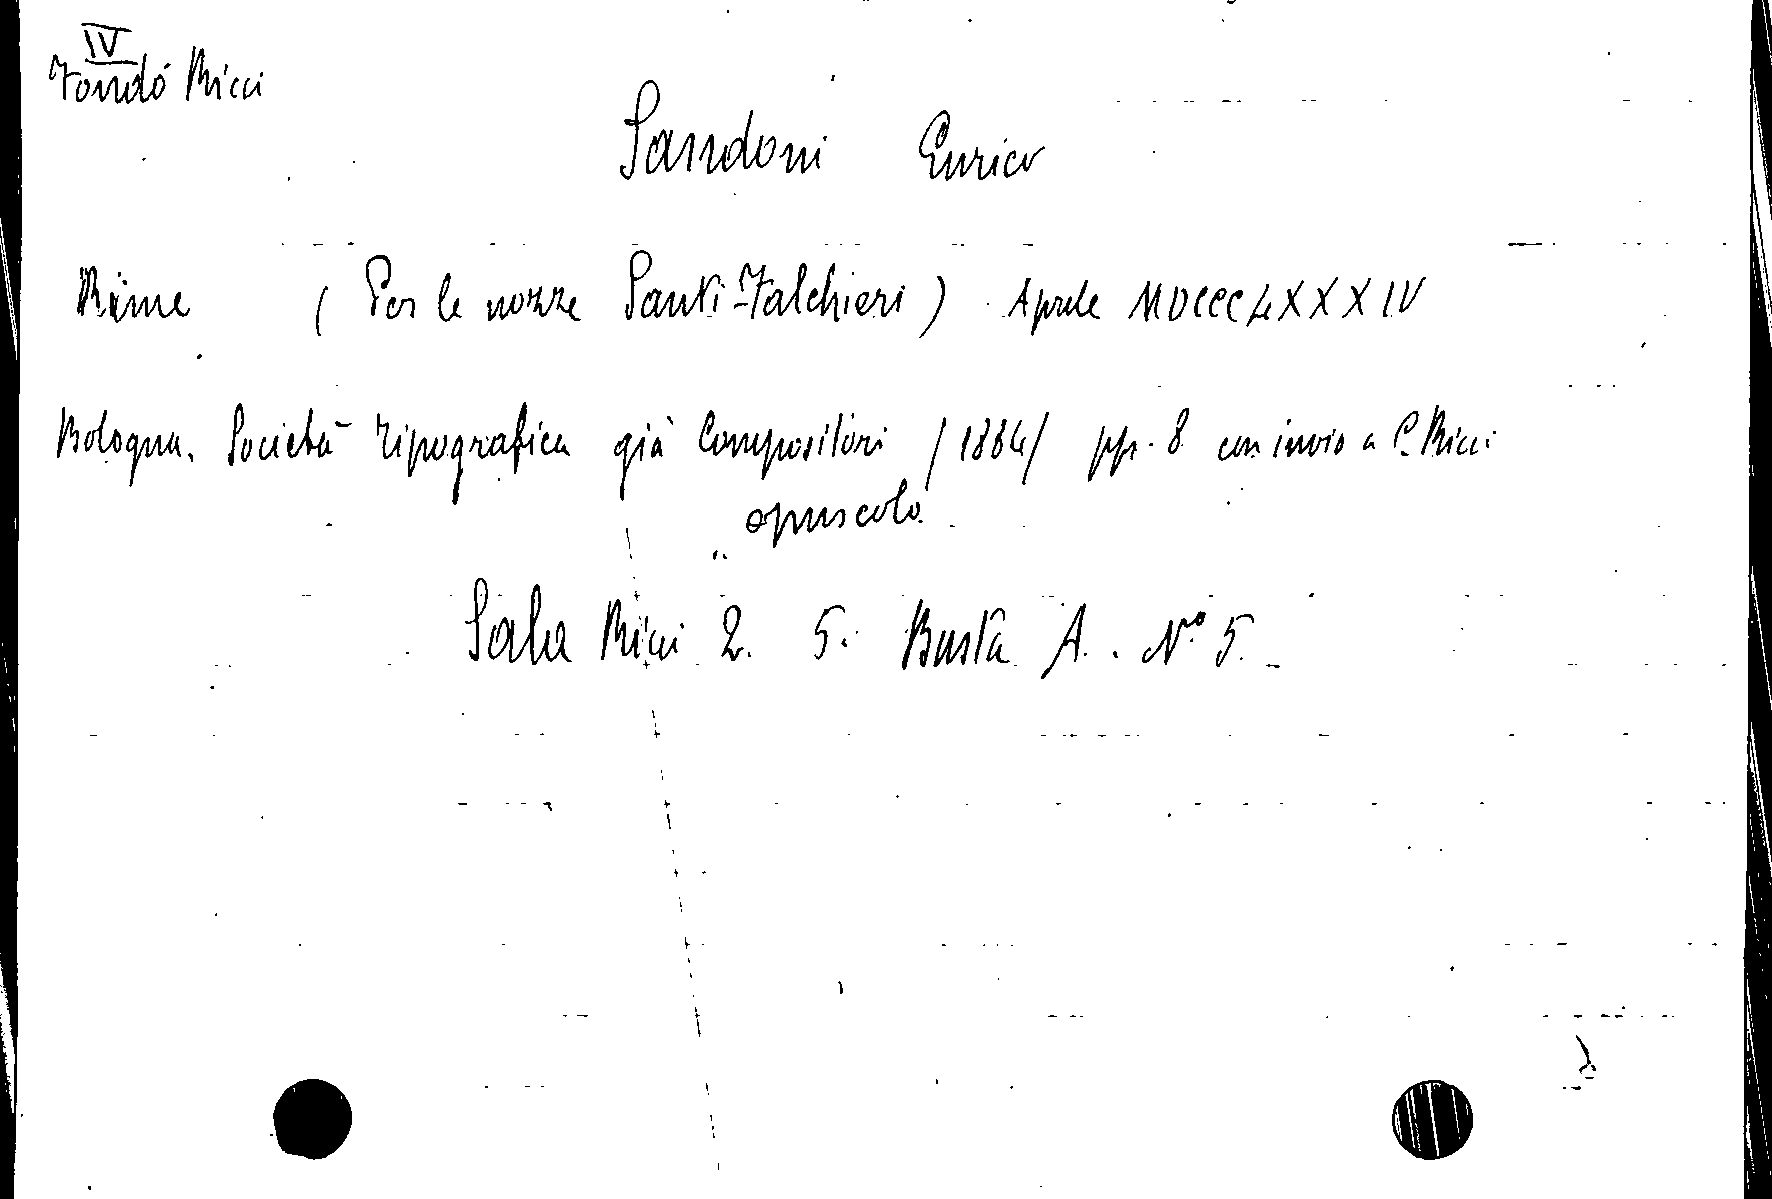 IV
Fondo Ricci
Sandoni Enrico
Rime ( Per le nozze Santi-Falchieri ) Aprile MDCCCLXXXIV
Bologna. Società Tipografica già Compositori /1884/ pp. 8 con invio a C. Ricci
opuscolo
Sala Ricci 2. 5. Busta A. N° 5.